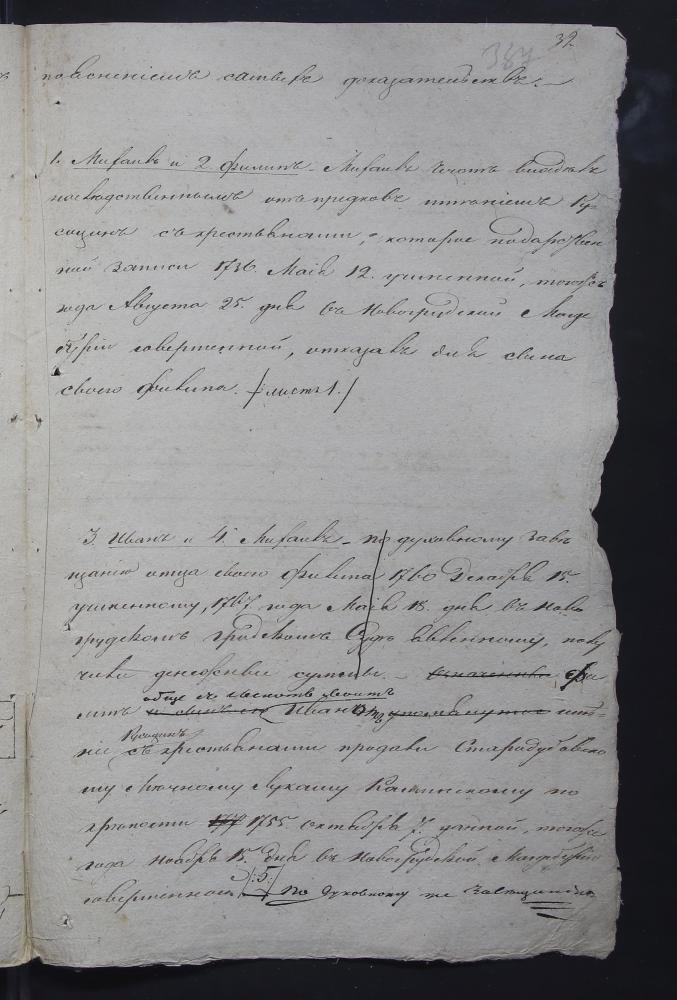 32
387
пояснениемъ самыхъ доказательствъ. —
1. Михаилъ и 2 Филипъ. Михаилъ Чечотъ владѣлъ
наслѣдственнымъ отъ предковъ имѣніемъ Ку
социнъ съ крестьянами, которое по дарствен
ной записи 1736. Маія 12. учиненной, тогожъ
года Августа 25. дня въ Новогрудской Магде
бурiи совершенной, отказалъ для сына
своего Филипа. /листъ 1./
3. Иванъ и 4. Михаилъ — по духовному завѣ
щанію отца своего Филипа 1760 Декабря 15.
учиненному, 1767 года Маія 18. дня въ Ново
грудскомъ Гродскомъ Судѣ явленному, полу
чили денежныя суммы. — Означенный Фи
обще съ
липъ и сынъ его Иванъ упомянутое имѣ-
Кусоцинъ
ніе съ крестьянами продали Стародубовско
му Мечному Лукашу Каминскому по
крѣпости 177 1755 Октября 7. данной, тогожъ
года Ноября 15. дня въ Новогрудской Магдебуріи
совершенной /:5:/ По духовному же завещанію